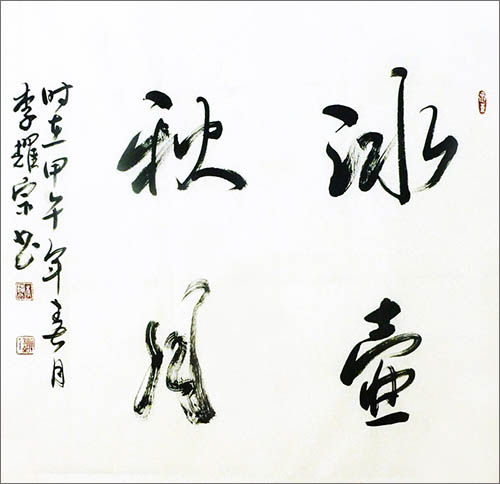 冰壶
秋月
时在甲午年春月
李耀宗书